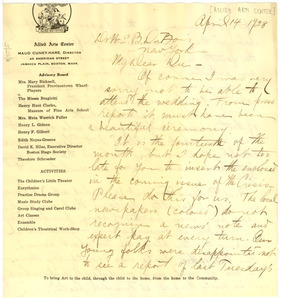 [ALLIED ARTS CENTER]
April 14 1928
Allied Arts Center
MAUD CUNEY-HARE, DIRECTOR
43 SHERIDAN STREET
JAMAICA PLAIN, BOSTON, MASS.
Advisory Board
Mrs. Mary Bicknell,
President Provincetown Wharf-Players
The Misses
Henry Hunt Clarke,
Museum of Fine Arts School
Mrs. Meta Warrick Fuller
Henry L. Gideon
Henry F. Gilbert
Edith Noyes-Greene
David K. Niles, Executive Director
Boston Stage Society
Theodore Schroeder
ACTIVITIES
The Children's Little Theater
Eurythmics
Practice Drama Group
Music Study Clubs
Group Singing and Carol Clubs
Art Classes
Ensemble
Children's Theatrical Work-Shop
New York
My dear
Of course I was very
sorry not to be able to
attend the wedding. From press
report it must have been
a beautiful ceremony.
It is the fourteenth of the
month, but I hope not too
late for you to insert the enclosed
in the coming issue of the Crisis.
Please do this for us. The local
newspapers (colored) do not
recognize a news' note and
expect pay at every turn. Our
young folks were disappointed not
to see a report of last Tuesday's
To bring Art to the child, through the child to the home, from the home to the Community.